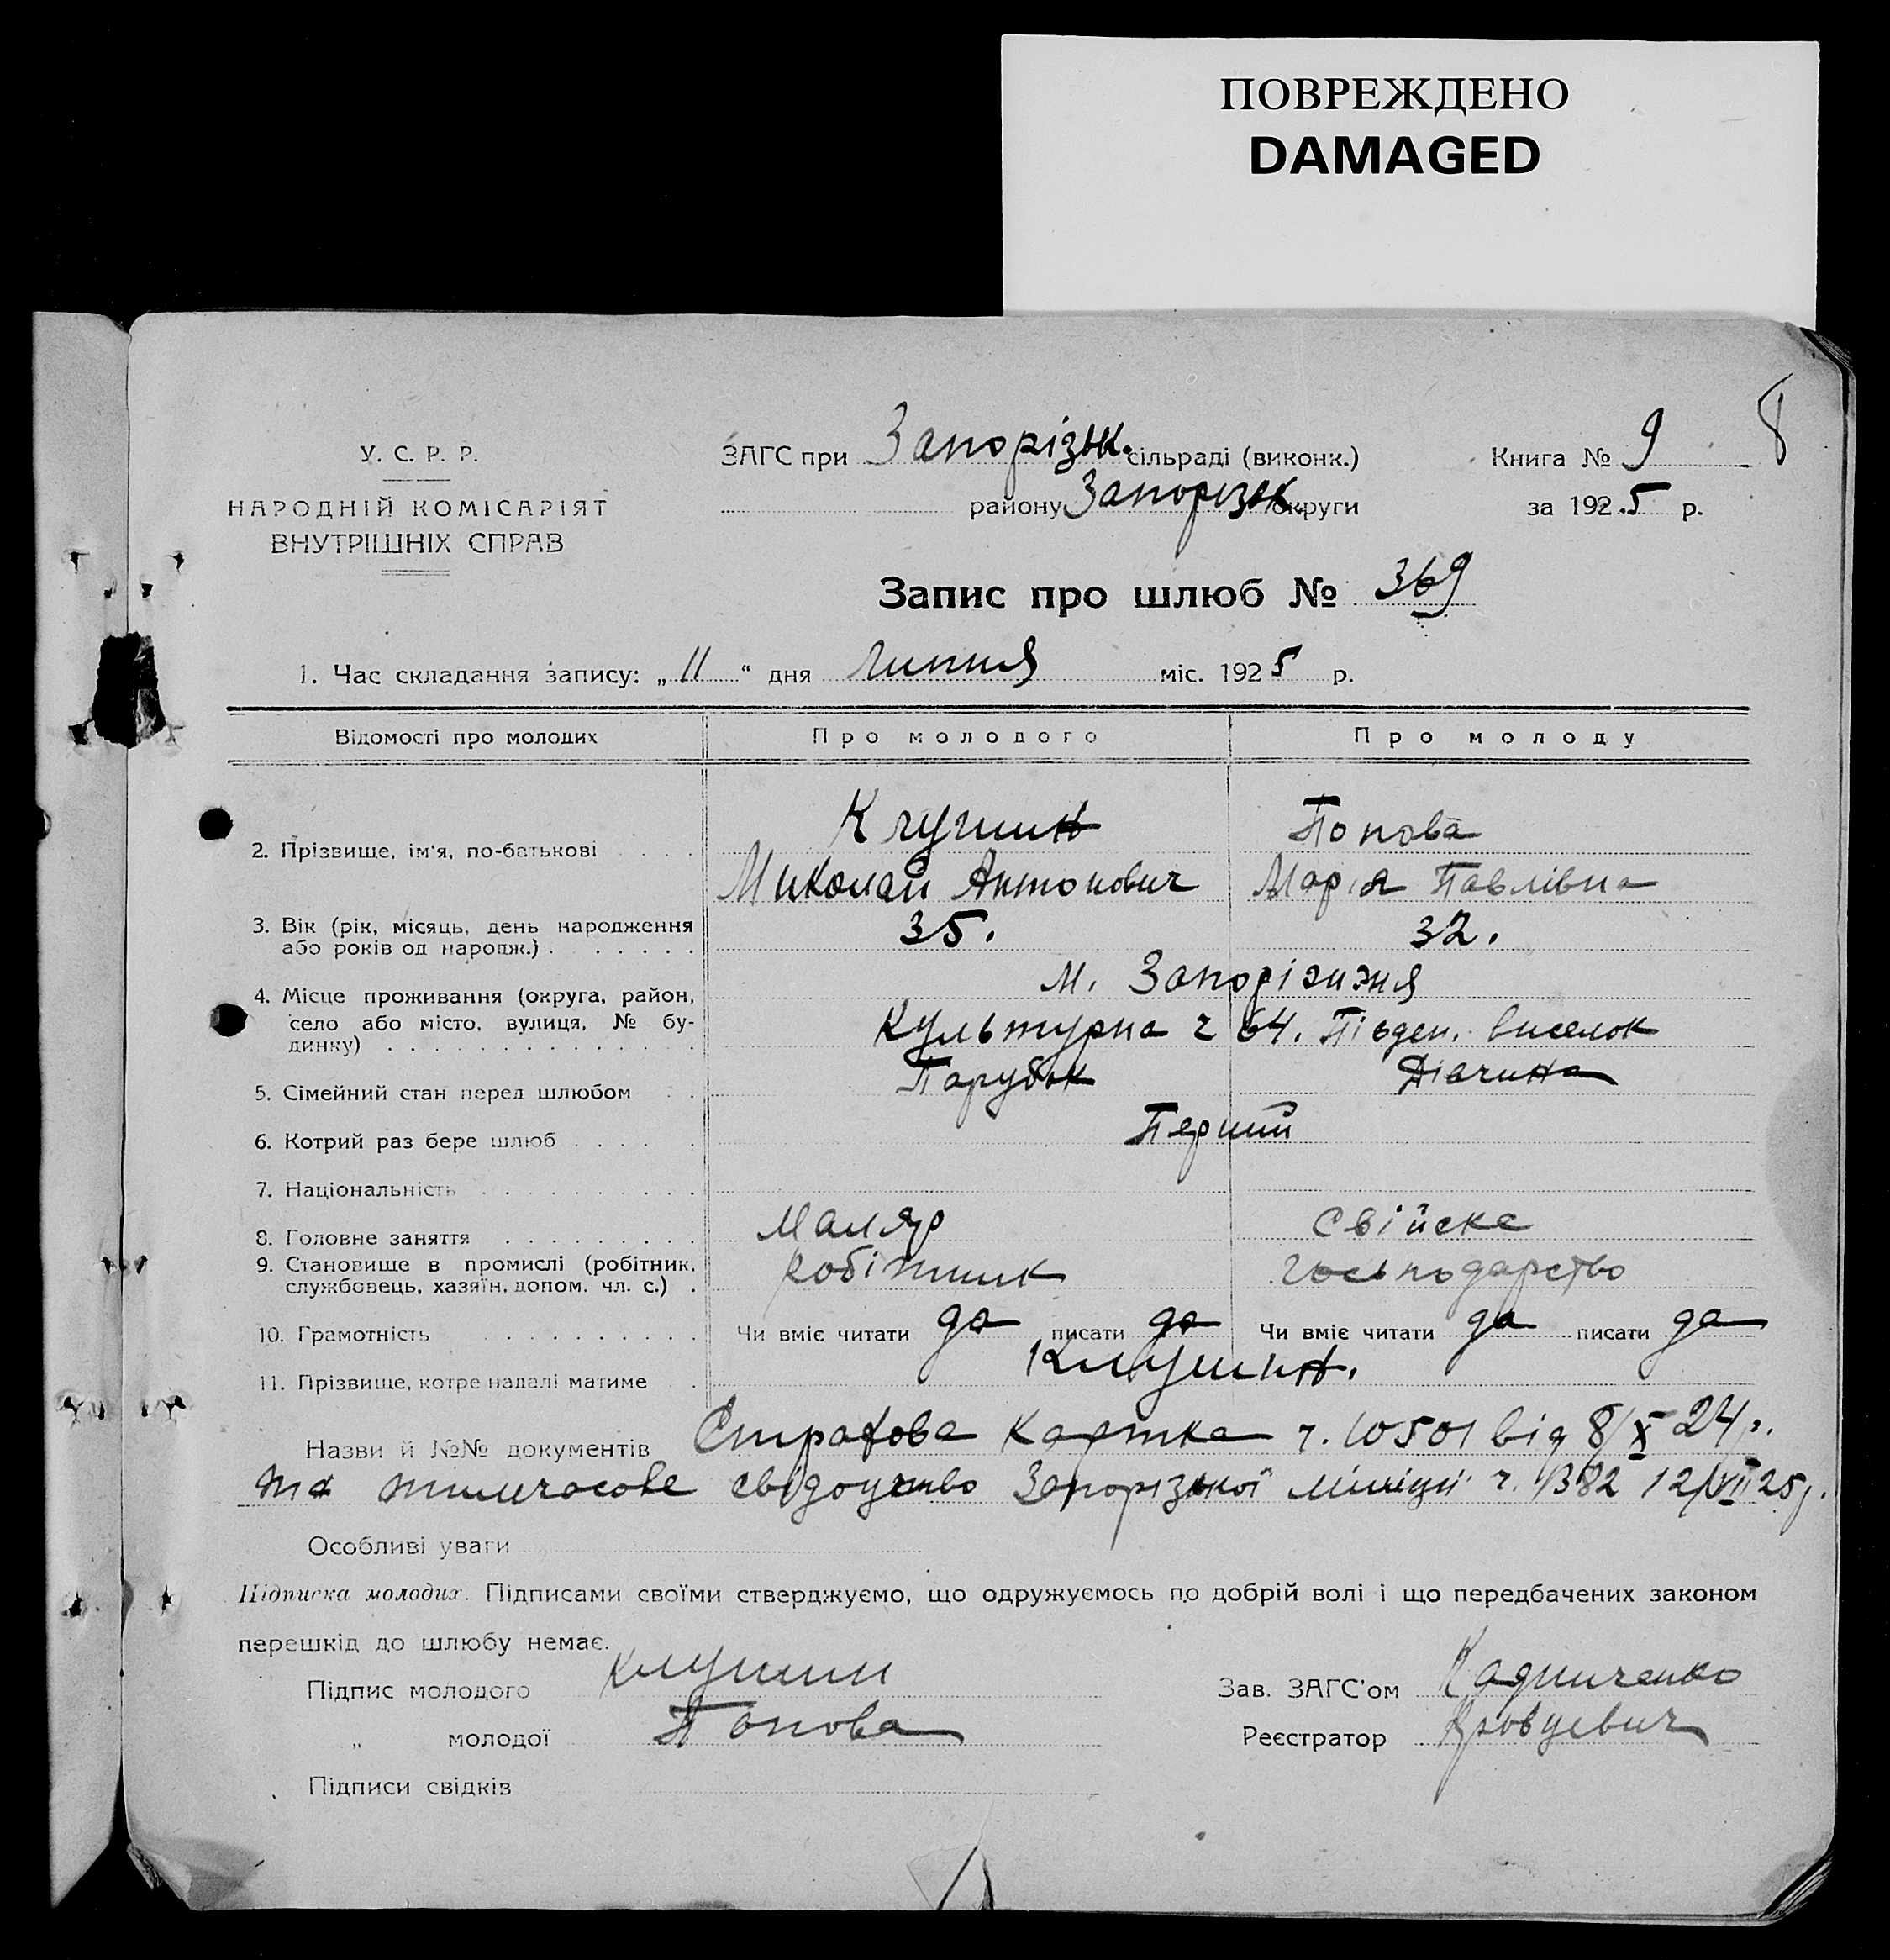 ПОВРЕЖДЕНО
DAMAGED
8
У. С. Р. Р.
НАРОДНІЙ КОМІСАРІЯТ
ВНУТРІШНІХ СПРАВ
ЗАГС при Запорізьк. сільраді (виконк.)
району Запорізьк. округи
Книга № 9
за 1925 р.
Запис про шлюб № 369
1. Час складання запису: „ 11 “ дня липня міс. 1925 р.
Відомості про молодих Про молодого Про молоду
Клушин Попова
2. Прізвище, ім'я, по-батькові Миколай Антонович Марія Павлівна
3. Вік (рік, місяць, день народження
або років од народж.) 35. 32.
м. Запоріжжя
4. Місце проживання (округа, район,
село або місто, вулиця, № бу-
динку) Культурна ч 64. Півден. виселок
5. Сімейний стан перед шлюбом Парубок Дівчина
6. Котрий раз бере шлюб Перший
7. Національність
8. Головне заняття Маляр Свійске
9. Становище в промислі (робітник,
службовець, хазяїн, допом. чл. с.) робітник господарство
10. Грамотність Чи вміє читати да писати да Чи вміє читати да писати да
11. Прізвище, котре надалі матиме Клушин.
Назви й №№ документів Страхова картка ч. 10501 від 8/X 24р.
та тимчасове свідоцтво Запорізької міліції ч. 1382 12/VII 25р.
Особливі уваги
Підписка молодих. Підписами своїми стверджуємо, що одружуємось по добрій волі і що передбачених законом
перешкід до шлюбу немає.
Підпис молодого Клушин
„ молодої Попова
Підписи свідків
Зав. ЗАГС'ом
Реєстратор